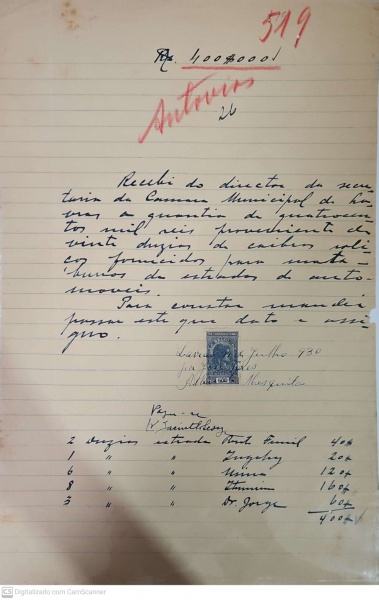 519
Rs. 400$000
Autovias
26
Recebi do director da secre-
taria da Camara Municipal de La-
vras a quantia de quatrocen-
tos mil reis proveniente de
vinte duzias de caibros roli-
ços fornecidos para mata-
burros da estrada de auto-
moveis.
Para constar mandei
passar este que dato e assi-
gno.
Lavras de Julho 930
Mesquita
Pague-se
2 Duzias estrada Famil 40$
1 " " Ingahy 20$
6 " " 120$
8 " " Itumirim 160$
3 " " Dr. Jorge 60$
400$
CS Digitalizado com CamScanner